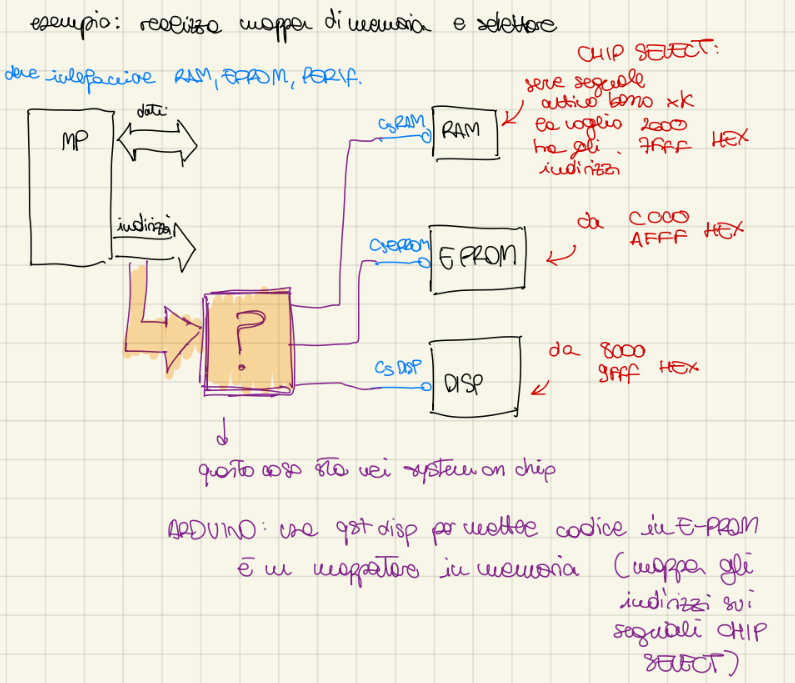 esempio: realizza mappa di memoria e selettore
deve interfacciare RAM, EPROM, PERIF.
MP
dati
indirizzi
CHIP SELECT:
serve segnale
attivo basso xk
lo voglio 2000
tra gli 7FFF HEX
indirizzi
CsRAM
RAM
CsEPROM
EPROM
da C000
AFFF HEX
?
CsDISP
DISP
da 8000
9FFF HEX
questo coso sta nei system on chip
ARDUINO: usa qst disp per mettere codice in E-PROM
è un mappatore in memoria (mappa gli
indirizzi sui
segnali CHIP
SELECT)